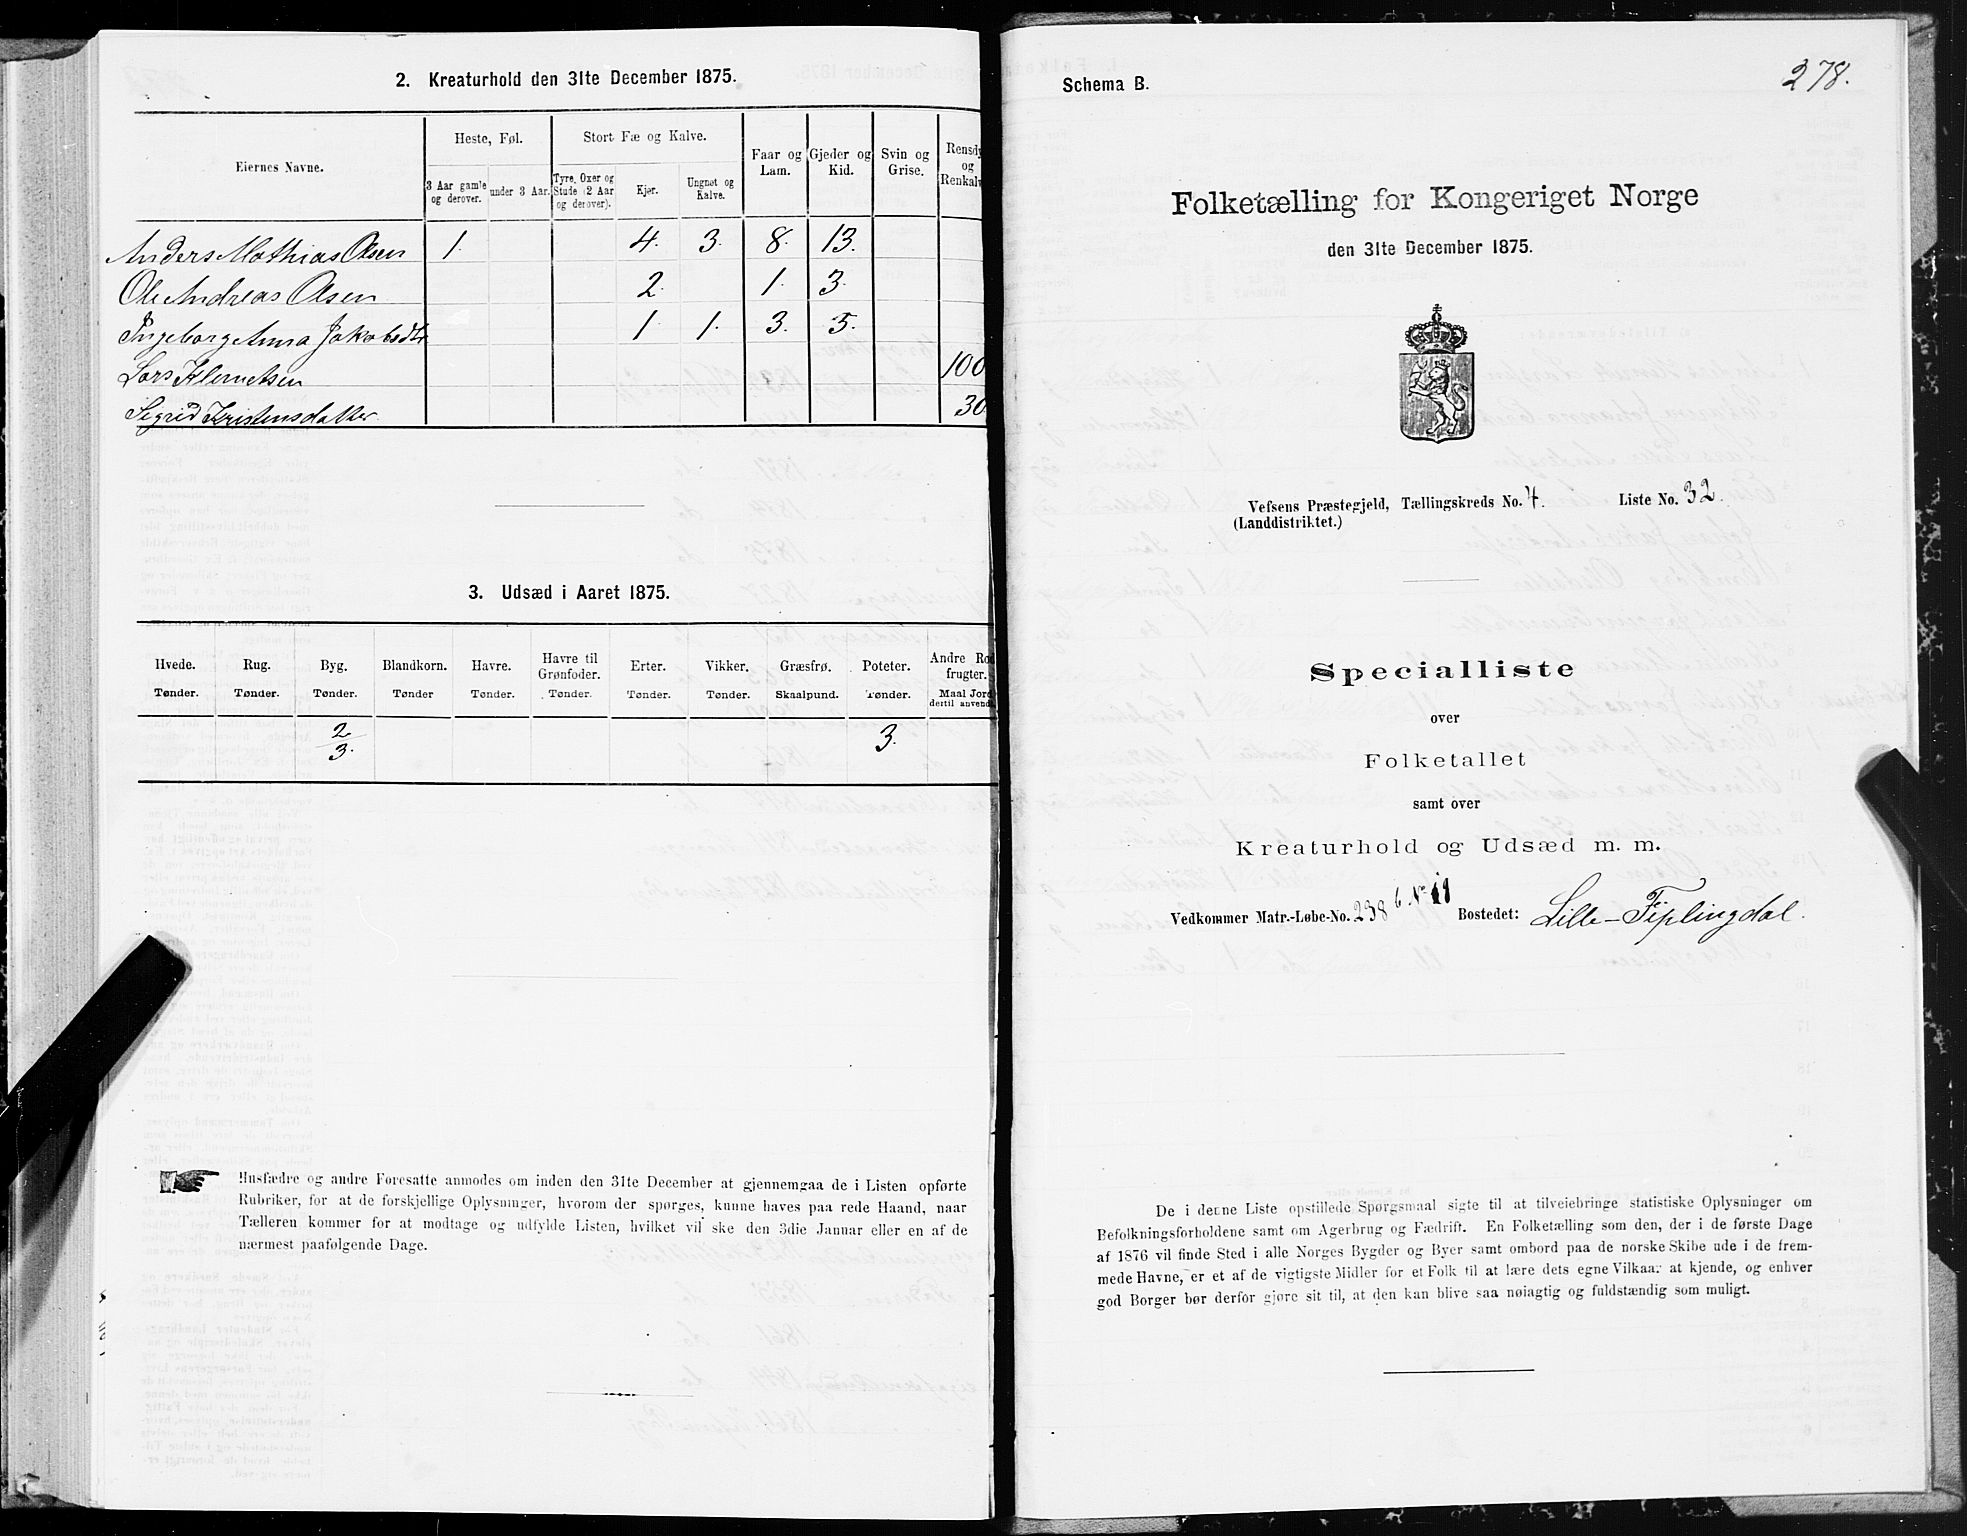 2. Kreaturhold den 31te December 1875.
Eiernes Navne.
Heste, Føl.
Stort Fæ og Kalve.
Faar og Lam.
Gjeder og Kid.
Svin og Grise.
Rensdy og Renkalv
3 Aar gamle og derover.
under 3 Aar.
Tyre, Oxer og Stude (2 Aar og derover).
Kjør.
Ungnøt og Kalve.
Anders Mathias Olsen 1. 4. 3. 8. 13.
Ole Andreas Olsen 2. 1. 3.
Ingeborg Anna Jakobsdtr 1 1. 3. 5.
Lars Klemetsen 100
Sigrid Kristensdatter 30.
3. Udsæd i Aaret 1875.
Hvede. Rug. Byg. Blandkorn. Havre. Havre til Grønfoder. Erter. Vikker. Græsfrø. Poteter. Andre Rod frugter.
Tønder. Tønder. Tønder. Tønder Tønder. Tønder. Tønder. Tønder. Skaalpund. Tønder. Maal Jord dertil anvendt
2/3. 3.
Husfædre og andre Foresatte anmodes om inden den 31te December at gjennemgaa de i Listen opførte
Rubriker, for at de forskjellige Oplysninger, hvorom der spørges, kunne haves paa rede Haand, naar
Tælleren kommer for at modtage og udfylde Listen, hvilket vil ske den 3die Januar eller en af de
nærmest paafølgende Dage.
278.
Schema B.
Folketælling for Kongeriget Norge
den 31te December 1875.
Vefsens Præstegjeld, Tællingskreds No. 4. Liste No. 32.
(Landdistriktet.)
Specialliste
over
Folketallet
samt over
Kreaturhold og Udsæd m. m.
Vedkommer Matr.-Løbe-No. 238 b. No 19 Bostedet: Lille-Fiplingdal.
De i denne Liste opstillede Spørgsmaal sigte til at tilveiebringe statistiske Oplysninger om
Befolkningsforholdene samt om Agerbrug og Fædrift. En Folketælling som den, der i de første Dage
af 1876 vil finde Sted i alle Norges Bygder og Byer samt ombord paa de norske Skibe ude i de frem-
mede Havne, er et af de vigtigste Midler for et Folk til at lære dets egne Vilkaar at kjende, og enhver
god Borger bør derfor gjøre sit til, at den kan blive saa nøiagtig og fuldstændig som muligt.